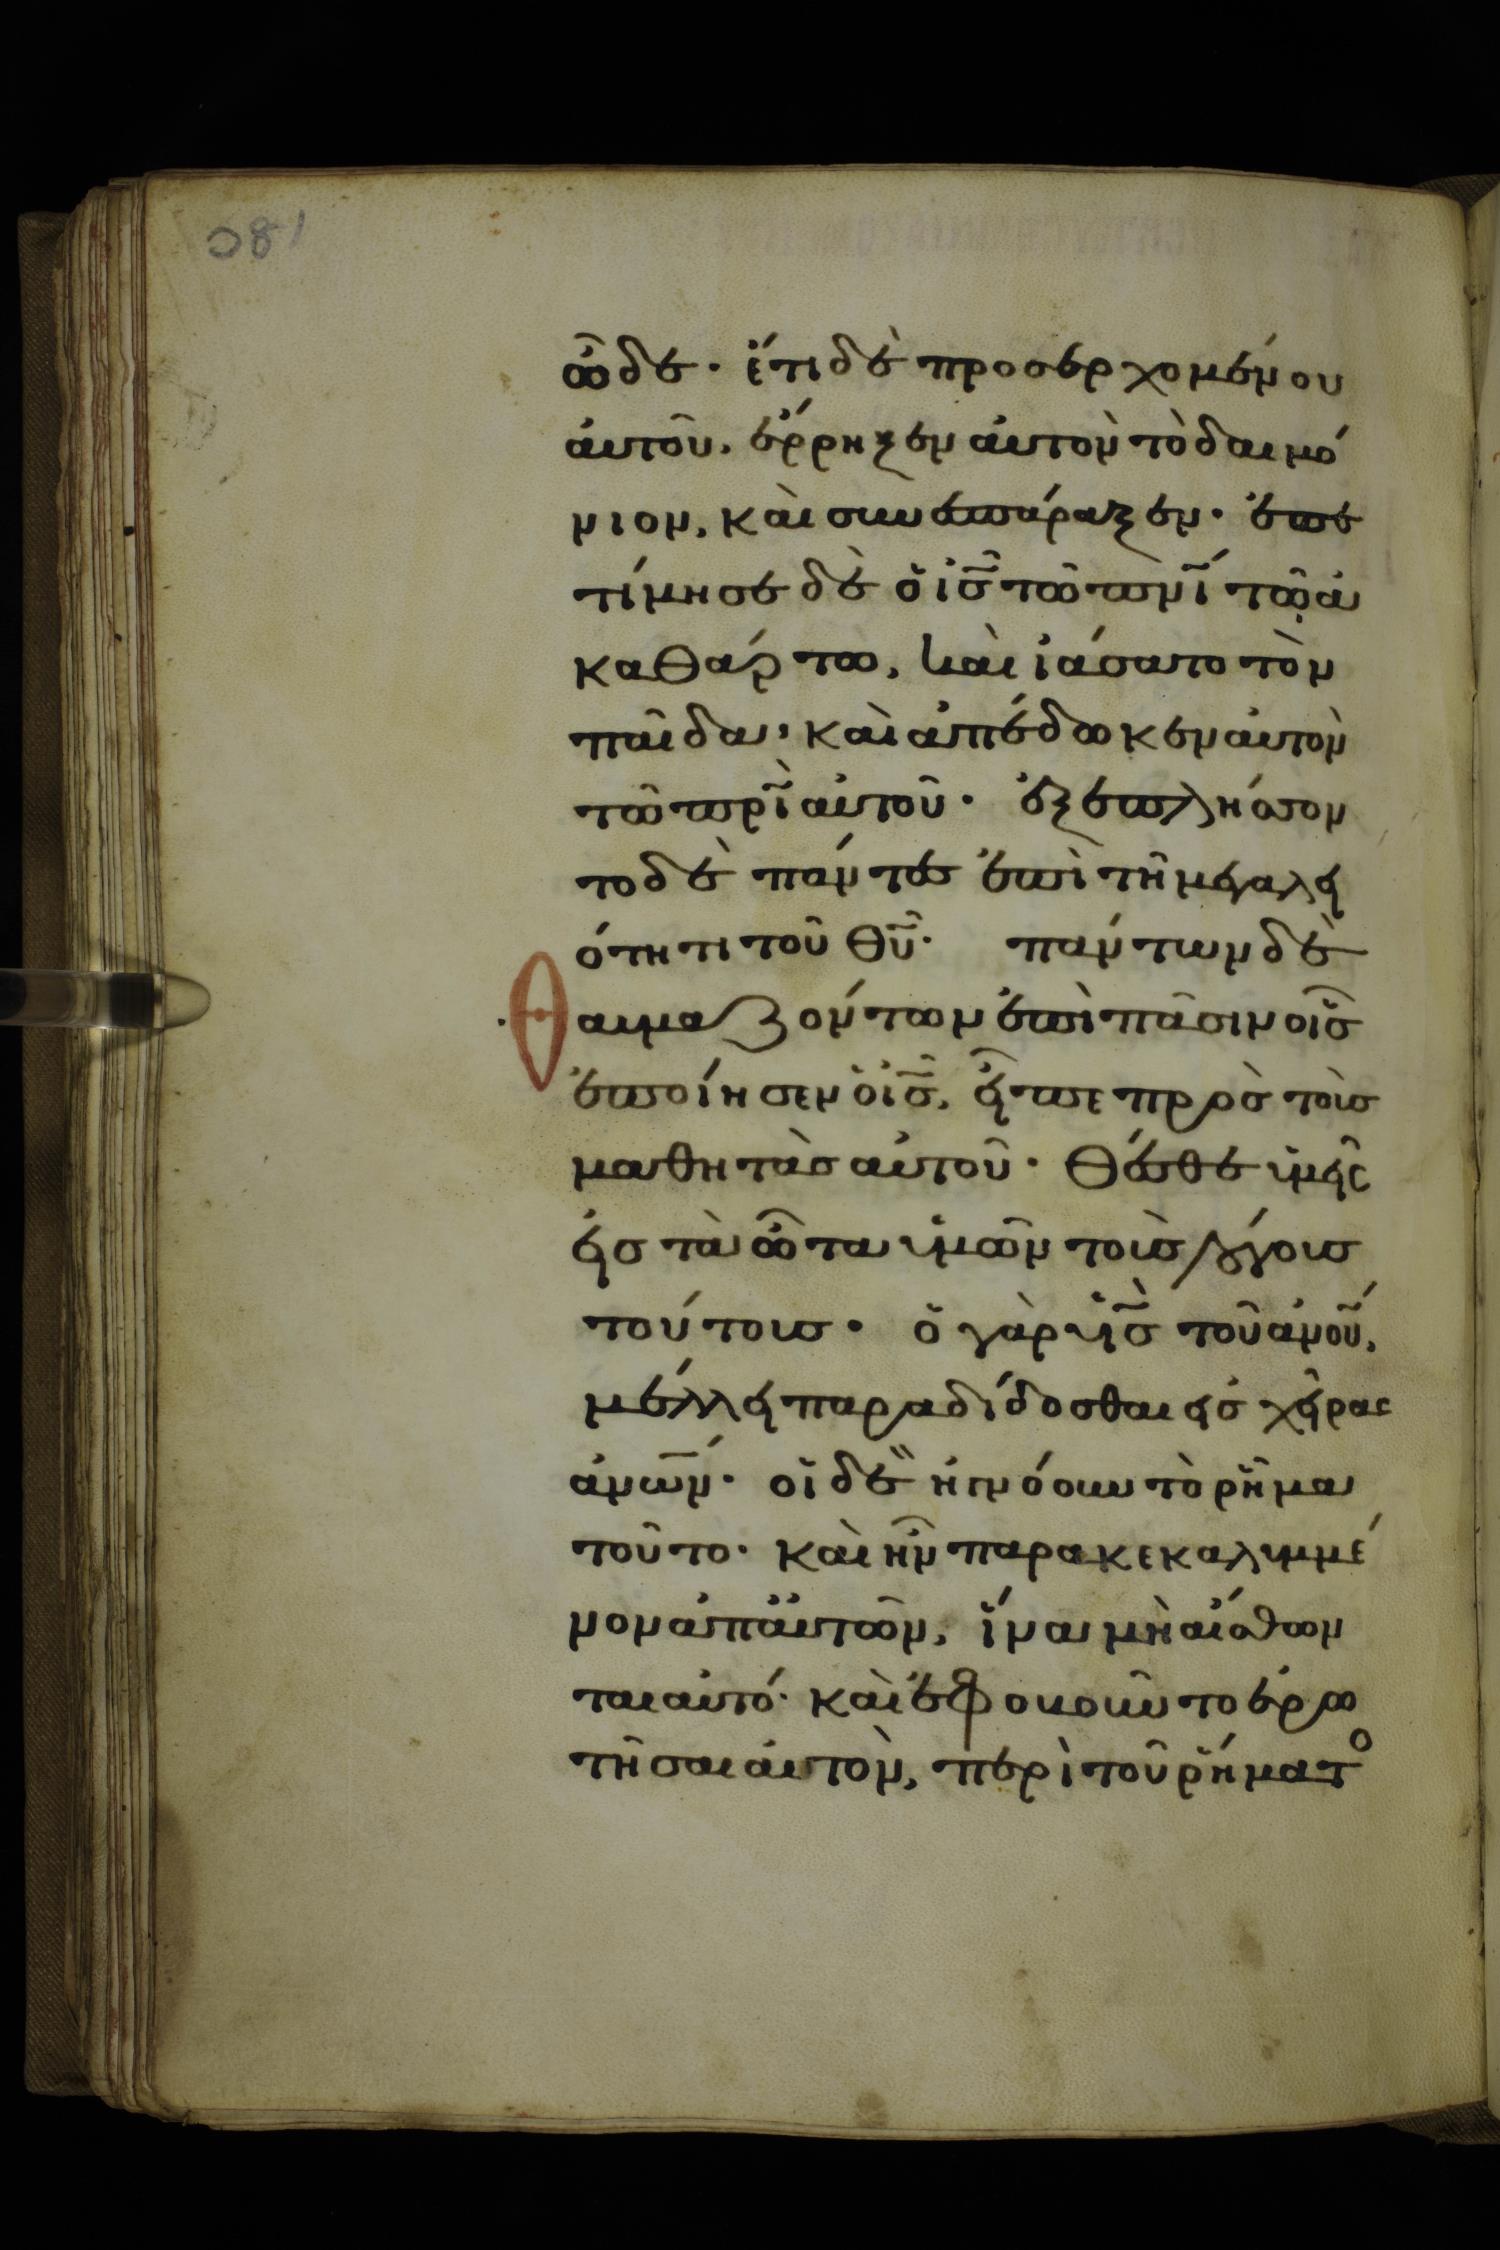 180
ὧδε· ἔτι δὲ προσερχομένου
αὐτοῦ, ἔρρηξεν αὐτὸν τὸ δαιμό
νιον, καὶ συνεσπάραξεν· ἐπε
τίμησε δὲ ὁ ις̅ τῶ πνι̅ τῶ ἀ
καθάρτω, καὶ ἰάσατο τὸν
παῖδα, καὶ ἀπέδωκεν αὐτὸν
τῶ πρι̅ αὐτοῦ· ἐξεπλήσσον
το δὲ πάντες ἐπὶ τῆ μεγαλει
ότητι τοῦ θυ̅· πάντων δὲ
θαυμαζόντων ἐπὶ πᾶσιν οἷς
ἐποίησεν ὁ ις̅, εἶπε πρὸς τοὺς
μαθητὰς αὐτοῦ· Θέσθε ὑμεῖς
εἰς τὰ ὦτα ὑμῶν τοὺς λόγους
τούτους· ὁ γὰρ υἱς̅ τοῦ ανου̅,
μέλλει παραδίδοσθαι εἰς χεῖρας
ανων̅· οἱ δὲ ἠγνόουν τὸ ῥῆμα
τοῦτο· καὶ ἦν παρακεκαλυμμέ
νον ἀπ' αὐτῶν, ἵνα μὴ αἴσθων
ται αὐτό· καὶ ἐφοβοῦντο ἐρω
τῆσαι αὐτὸν, περὶ τοῦ ῥήματο